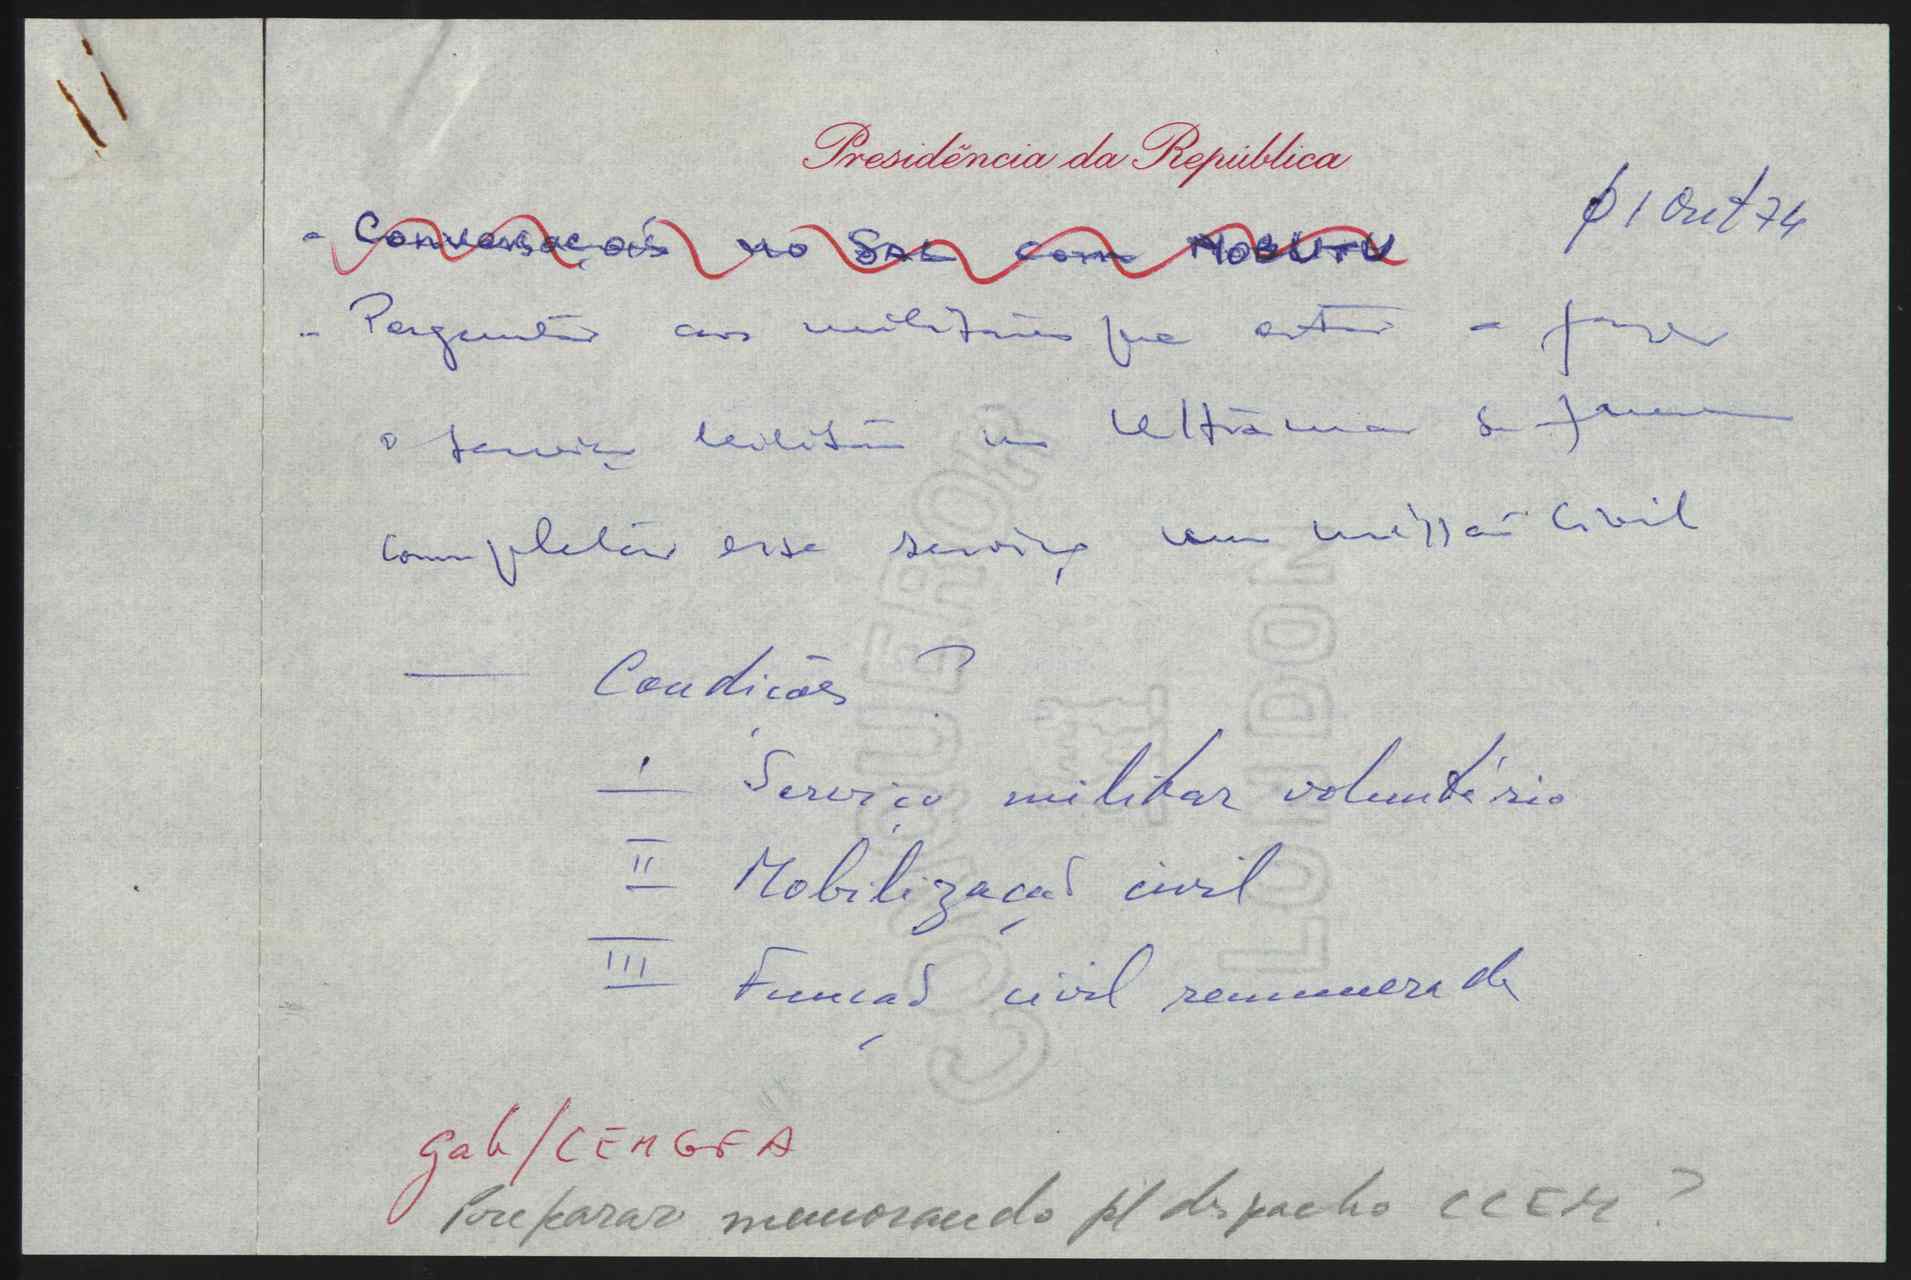 Presidência da República
Ø 1 Out 74
- Conversações no SAL com MOBUTU
- Perguntar aos militares que estão a fazer
o serviço militar no Ultramar se
completar esse serviço em missão Civil
— Condições?
I Serviço militar voluntário
II Mobilização civil
III Função civil remunerada
Gab/CEMGFA
Preparar memorando p/ despacho CCEM?
CONQUEROR
LONDON